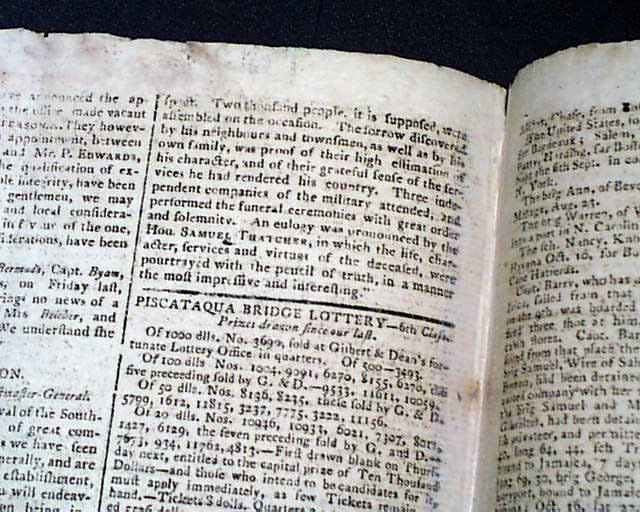 ave announced the ap-
the office made vacant
EARSONS. They howev-
appointment, between
and Mr. P. EDWARDS,
he qualification of ex-
ble integrity, have been
gentlemen, we may
and local considera-
in favur of the one,
siderations, have been
Bermuda, Capt. Byam,
on Friday last,
rings no news of a
Mrs Belcher, and
We understand she
ON.
stmaster-General.
val of the South-
of great com-
s we have seen
nerally, and are
establishment,
u will endeav-
spect. Two thousand people, it is supposed, were
assembled on the occasion. The sorrow discovered
by his neighbours and townsmen, as well as by his
own family, was proof of their high estimation of
his character, and of their grateful sense of the ser-
vices he had rendered his country. Three inde-
pendent companies of the military attended, and
performed the funeral ceremonies with great order
and solemnity. An eulogy was pronounced by the
Hon. SAMUEL THATCHER, in which the life, char-
acter, services and virtues of the deceased, were
pourtrayed with the pencil of truth, in a manner
the most impressive and interesting.
PISCATAQUA BRIDGE LOTTERY—6th Class.
Prizes drawn since our last.
Of 1000 dlls. No. 3690, sold at Gilbert & Dean's for-
tunate Lottery Office in quarters. Of 500—3493.
Of 100 dlls Nos. 1004, 9091, 6270, 8155, 6276, the
five preceeding sold by G. & D.—9533, 11611, 10059.
Of 50 dlls. Nos. 8136, 8235, these sold by G. & D.
5799, 1612, 11815, 3237, 7775, 3222, 11156.
Of 20 dlls. Nos. 10946, 10933, 6021, 7397,
1427, 6129, the seven preceding sold by G. and D.—
7673, 934, 11762, 4813.—First drawn blank on Thurs-
day next, entitled to the capital prize of Ten Thousand
Dollars—and those who intend to be candidates for it,
must apply immediately, as few Tickets remain
hand.—Tickets 8 dolls. Quarters
Chase, from
The United States,
for Bordeaux; Salem,
for Bost
the 6th Sept. in co
N. York.
The brig Ann, of Beve
Malaga, Aug. 23.
Warren, of
into a port in N. Carolin
The sch. Nancy, Kn
Havana Oct. 10, for Bo
Cape Hatteras.
Capt. Barry, who has
sailed from that
the 9th, was boarded
three shot at him
cabin stores. Capt. Bar
from that place the
brig Samuel, Wire of Sale
had been detained
company with her
the brig Samuel and
Gibralter, had been deta
privateer, and permitte
long 64, 44, sch
bound to Jamaica, 7 day
69, 30, brig George
bound to Jamaica,
Oct. 16, lat